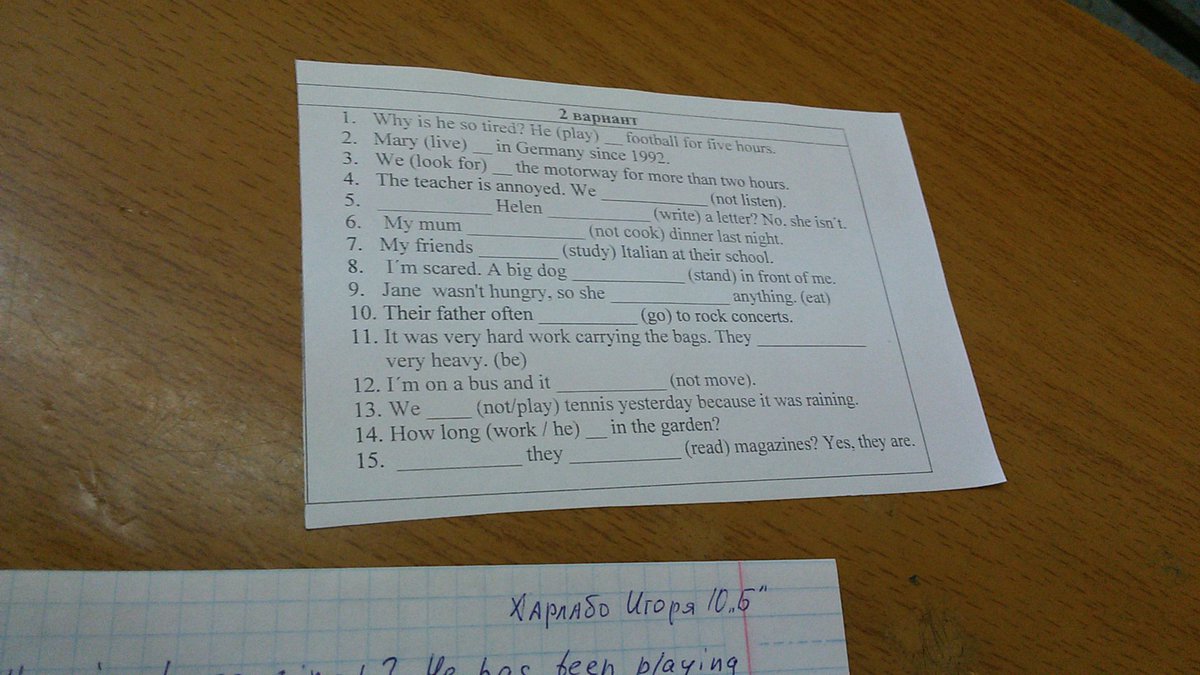 2 вариант
1. Why is he so tired? He (play) __ football for five hours.
2. Mary (live) __ in Germany since 1992.
3. We (look for) __ the motorway for more than two hours.
4. The teacher is annoyed. We ___________ (not listen).
5. ____________ Helen ___________ (write) a letter? No, she isn´t.
6. My mum ____________ (not cook) dinner last night.
7. My friends ________ (study) Italian at their school.
8. I´m scared. A big dog ____________ (stand) in front of me.
9. Jane wasn't hungry, so she ____________ anything. (eat)
10. Their father often __________ (go) to rock concerts.
11. It was very hard work carrying the bags. They ___________
very heavy. (be)
12. I´m on a bus and it ___________ (not move).
13. We ____ (not/play) tennis yesterday because it was raining.
14. How long (work / he) __ in the garden?
15. ____________ they ___________ (read) magazines? Yes, they are.
Харлабо Игоря 10„Б"
? He has been playing